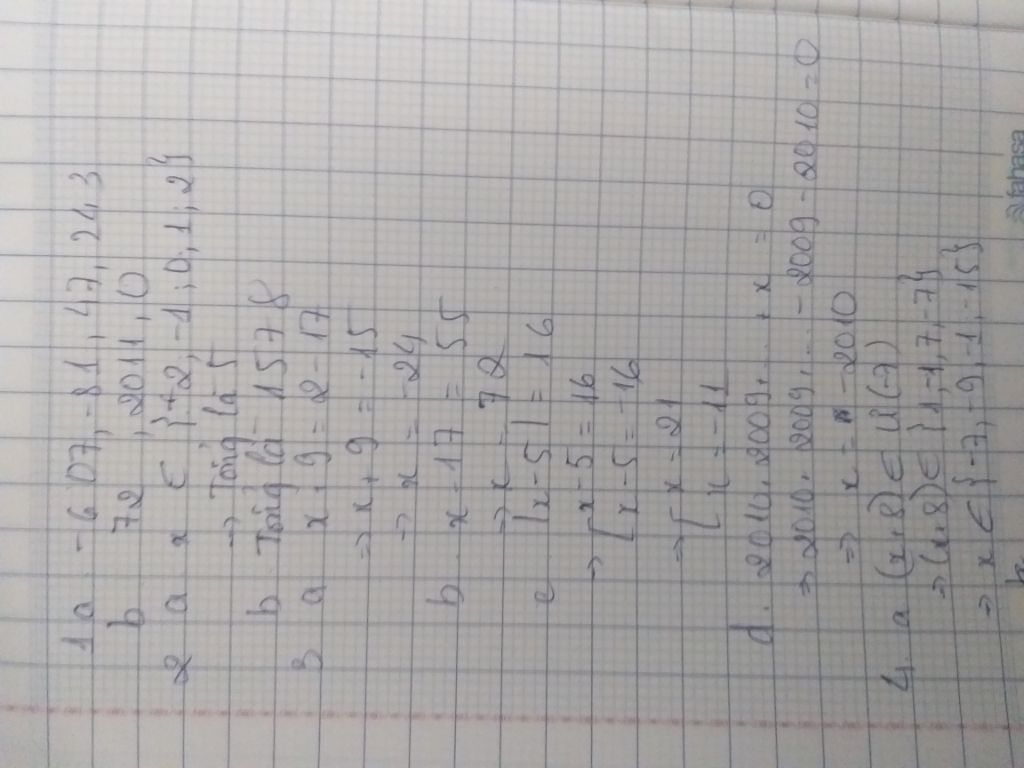 1 a - 607, -81, 47, 24, 3
b 72, 2011, 0
2 a x ∈ {-2, -1; 0, 1; 2}
→ Tổng là 5
b Tổng là - 1578
3 a x + 9 = 2 - 17
⇒ x + 9 = -15
→ x = -24
b x - 17 = 55
→ x = 72
c |x - 5| = 16
→ [x - 5 = 16
[x - 5 = -16
→ [x = 21
[x = -11
d. 2010 + 2009 + ... + x = 0
⇒ 2010 + 2009 + ... - 2009 - 2010 = 0
⇒ x = -2010
4. a (x + 8) ∈ Ư(-7)
→ (x + 8) ∈ {1, -1, 7, -7}
→ x ∈ {-7, -9, -1, -15}
fahasa